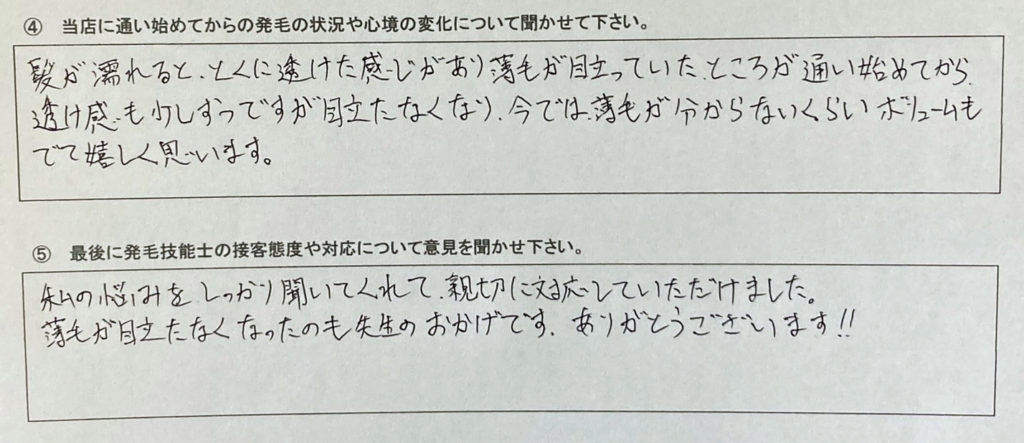 ④ 当店に通い始めてからの発毛の状況や心境の変化について聞かせて下さい。
髪が濡れると、とくに透けた感じがあり薄毛が目立っていた、ところが通い始めてから、
透け感も少しずつですが目立たなくなり、今では薄毛が分からないくらいボリュームも
でて嬉しく思います。
⑤ 最後に発毛技能士の接客態度や対応について意見を聞かせ下さい。
私の悩みをしっかり聞いてくれて、親切に対応していただけました。
薄毛が目立たなくなったのも先生のおかげです、ありがとうございます!!